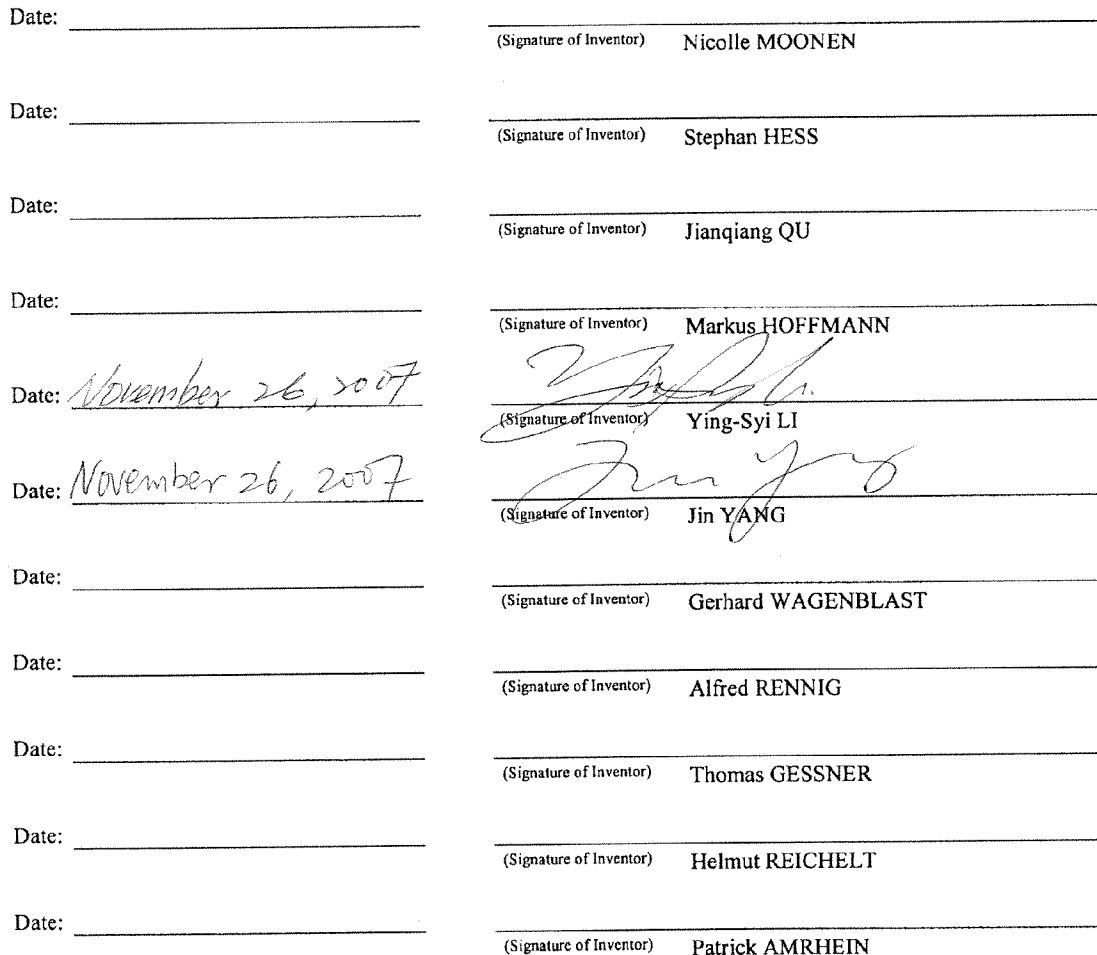 Date:
(Signature of Inventor) Nicolle MOONEN
Date:
(Signature of Inventor) Stephan HESS
Date:
(Signature of Inventor) Jianqiang QU
Date:
(Signature of Inventor) Markus HOFFMANN
Date: November 26, 2007
(Signature of Inventor) Ying-Syi LI
Date: November 26, 2007 Jin Yang
(Signature of Inventor) Jin YANG
Date:
(Signature of Inventor) Gerhard WAGENBLAST
Date:
(Signature of Inventor) Alfred RENNIG
Date:
(Signature of Inventor) Thomas GESSNER
Date:
(Signature of Inventor) Helmut REICHELT
Date:
(Signature of Inventor) Patrick AMRHEIN